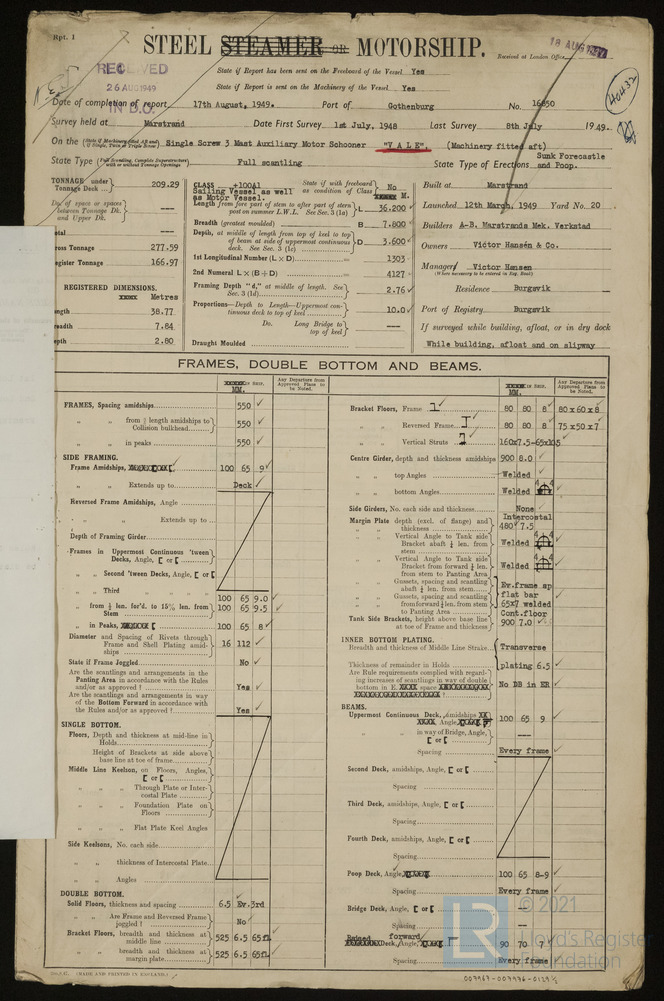 Rpt. 1
STEEL STEAMER OR MOTORSHIP.
18 AUG
Received at London Office
RECEIVED
26 AUG 1949
IN D.O.
State if Report has been sent on the Freeboard of the Vessel Yes
State if Report is sent on the Machinery of the Vessel Yes
Date of completion of report 17th August, 1949. Port of Gothenburg No. 16850
Survey held at Marstrand Date First Survey 1st July, 1948 Last Survey 8th July 1949.
On the Single Screw 3 Mast Auxiliary Motor Schooner "VALE" (Machinery fitted aft)
State Type (Full Scantling, Complete Superstructure with or without Tonnage Openings) Full scantling State Type of Erections Sunk Forecastle and Poop.
TONNAGE under Tonnage Deck 209.29
Do. of space or spaces between Tonnage Dk. and Upper Dk. ---
Total ---
Gross Tonnage 277.59
Register Tonnage 166.97
REGISTERED DIMENSIONS.
Metres
Length 38.77
Breadth 7.84
Depth 2.80
CLASS +100A1
Sailing Vessel as well as Motor Vessel.
State if with freeboard as condition of Class No
M.
Length from fore part of stem to after part of stern post on summer L.W.L. See Sec. 3 (1a) L 36.200
Breadth (greatest moulded) B 7.800
Depth, at middle of length from top of keel to top of beam at side of uppermost continuous deck. See Sec. 3 (1c) D 3.600
1st Longitudinal Number (L × D) 1303
2nd Numeral L × (B + D) 4127
Framing Depth "d," at middle of length. See Sec. 3 (1d) 2.76
Proportions—Depth to Length—Uppermost continuous deck to top of keel 10.0
Do. Long Bridge to top of keel ---
Draught Moulded
Built at Marstrand
Launched 12th March, 1949 Yard No. 20
Builders A-B. Marstrands Mek. Verkstad
Owners Victor Hansén & Co.
Manager Victor Hansen
(Where necessary to be entered in Reg. Book)
Residence Burgsvik
Port of Registry Burgsvik
If surveyed while building, afloat, or in dry dock
While building, afloat and on slipway
FRAMES, DOUBLE BOTTOM AND BEAMS.
IN SHIP.
MM.
Any Departure from Approved Plans to be Noted.
FRAMES, Spacing amidships 550
" " from ⅗ length amidships to Collision bulkhead 550
" " in peaks 550
SIDE FRAMING.
Frame Amidships, 100 65 9
" " Extends up to Deck
Reversed Frame Amidships, Angle
" " " Extends up to
Depth of Framing Girder
Frames in Uppermost Continuous 'tween Decks, Angle, [ or [
" " Second 'tween Decks, Angle, [ or [
" " Third " " " 100 65 9.0
" " from ⅗ len. for'd. to 15% len. from Stem 100 65 9.5
" " in Peaks, 100 65 8
Diameter and Spacing of Rivets through Frame and Shell Plating amidships 16 112
State if Frame Joggled No
Are the scantlings and arrangements in the Panting Area in accordance with the Rules and/or as approved? Yes
Are the scantlings and arrangements in way of the Bottom Forward in accordance with the Rules and/or as approved? Yes
SINGLE BOTTOM.
Floors, Depth and thickness at mid-line in Holds
Height of Brackets at side above base line at toe of frame
Middle Line Keelson, on Floors, Angles, [ or [
" " Through Plate or Intercostal Plate
" " Foundation Plate on Floors
" " Flat Plate Keel Angles
Side Keelsons, No. each side
" " thickness of Intercostal Plate
" " Angles
DOUBLE BOTTOM.
Solid Floors, thickness and spacing 6.5 Ev.3rd
" " Are Frame and Reversed Frame joggled? No
Bracket Floors, breadth and thickness at middle line 525 6.5 65fl
" " breadth and thickness at margin plate 525 6.5 65fl
IN SHIP.
MM.
Any Departure from Approved Plans to be Noted.
Bracket Floors, Frame 80 80 8 80x60x8
" " Reversed Frame 80 80 8 75x50x7
" " Vertical Struts 160x7.5-65x105
Centre Girder, depth and thickness amidships 900 8.0
" " top Angles Welded
" " bottom Angles Welded
Side Girders, No. each side and thickness None Intercostal
Margin Plate depth (excl. of flange) and thickness 480 7.5
" " Vertical Angle to Tank side Bracket abaft ¼ len. from stem Welded
" " Vertical Angle to Tank side Bracket from forward ¼ len. from stem to Panting Area Welded
" " Gussets, spacing and scantling abaft ¼ len. from stem Ev.frame sp flat bar
" " Gussets, spacing and scantling from forward ¼ len. from stem to Panting Area 65x7 welded Cont.floor
Tank Side Brackets, height above base line at toe of Frame and thickness 900 7.0
INNER BOTTOM PLATING.
Breadth and thickness of Middle Line Strake Transverse
Thickness of remainder in Holds plating 6.5
Are Rule requirements complied with regarding increases of scantlings in way of double bottom in E. space No DB in ER
BEAMS.
Uppermost Continuous Deck, amidships Angle, 100 65 9
" " in way of Bridge, Angle, [ or [ ---
Spacing Every frame
Second Deck, amidships, Angle, [ or [
Spacing
Third Deck, amidships, Angle, [ or [
Spacing
Fourth Deck, amidships, Angle, [ or [
Spacing
Poop Deck, Angle 100 65 8-9
Spacing Every frame
Bridge Deck, Angle, [ or [ ---
Spacing
Raised forward Deck, Angle, 90 70 7
Spacing Every frame
(MADE AND PRINTED IN ENGLAND.)
© 2021
Lloyd's Register
Foundation
LR
007967-007976-0129½